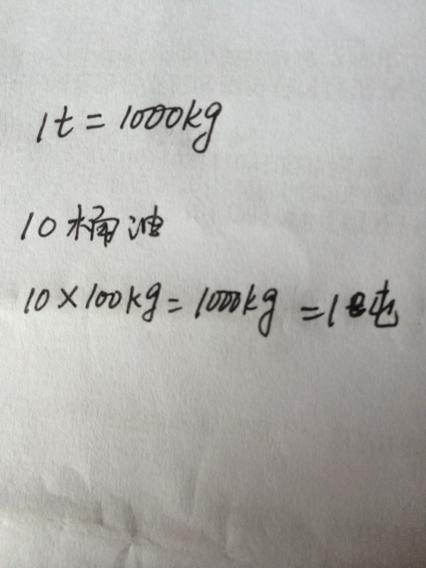 1t=1000kg
10桶油
10×100kg=1000kg=1吨